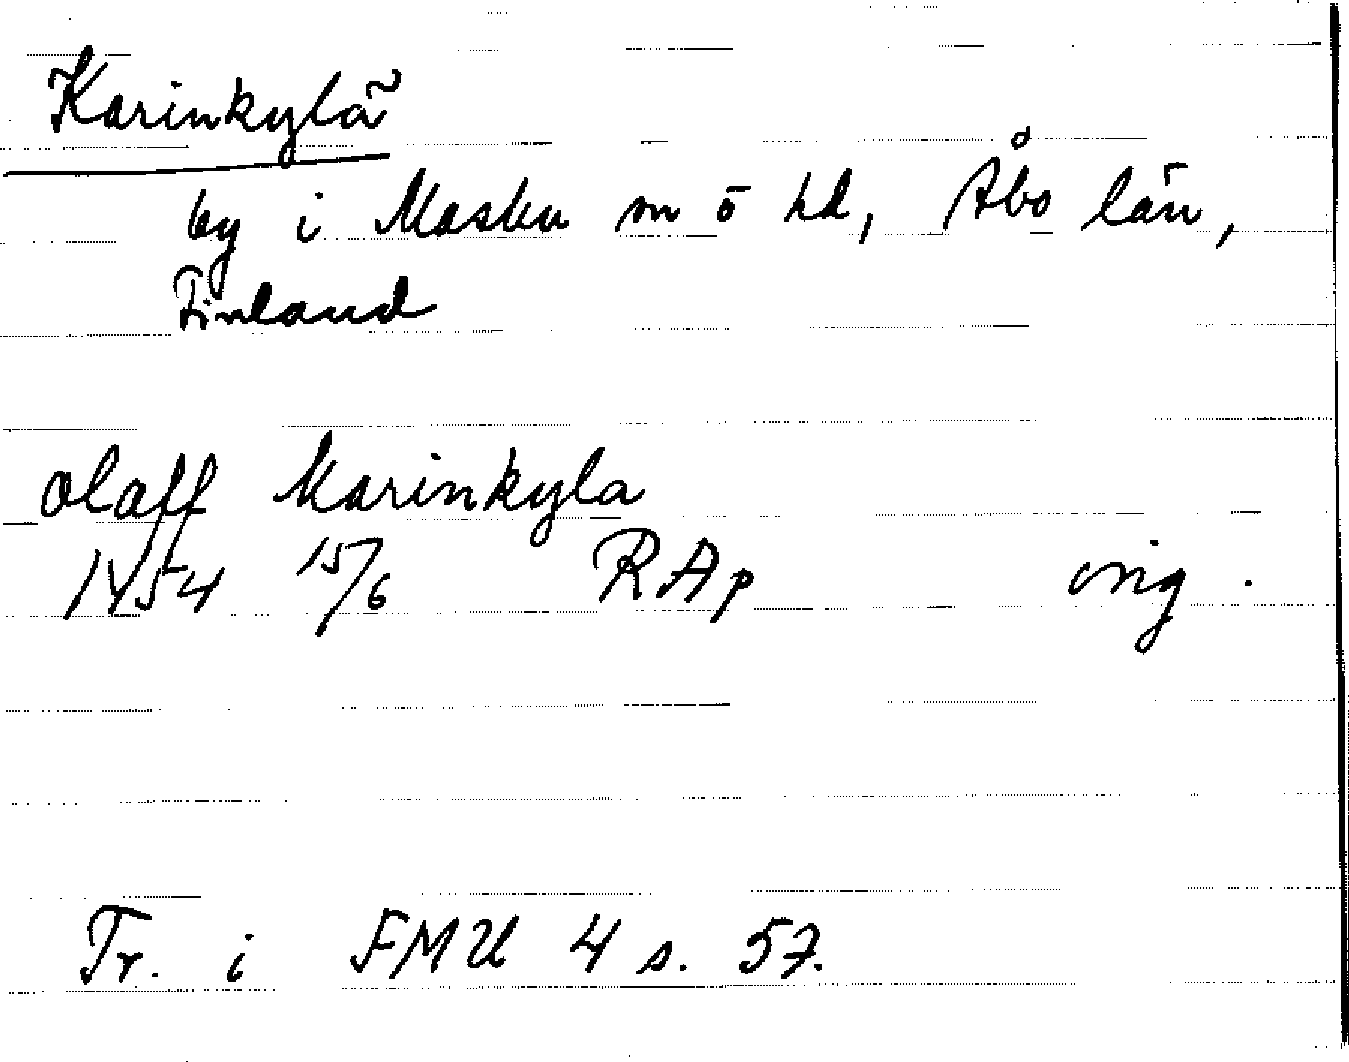 Karinkylä
by i Masku sn ö hd, Åbo län,
Finland
olaff Karinkyla
1454 15/6 RAp orig.
Tr. i FMU 4 s. 57.